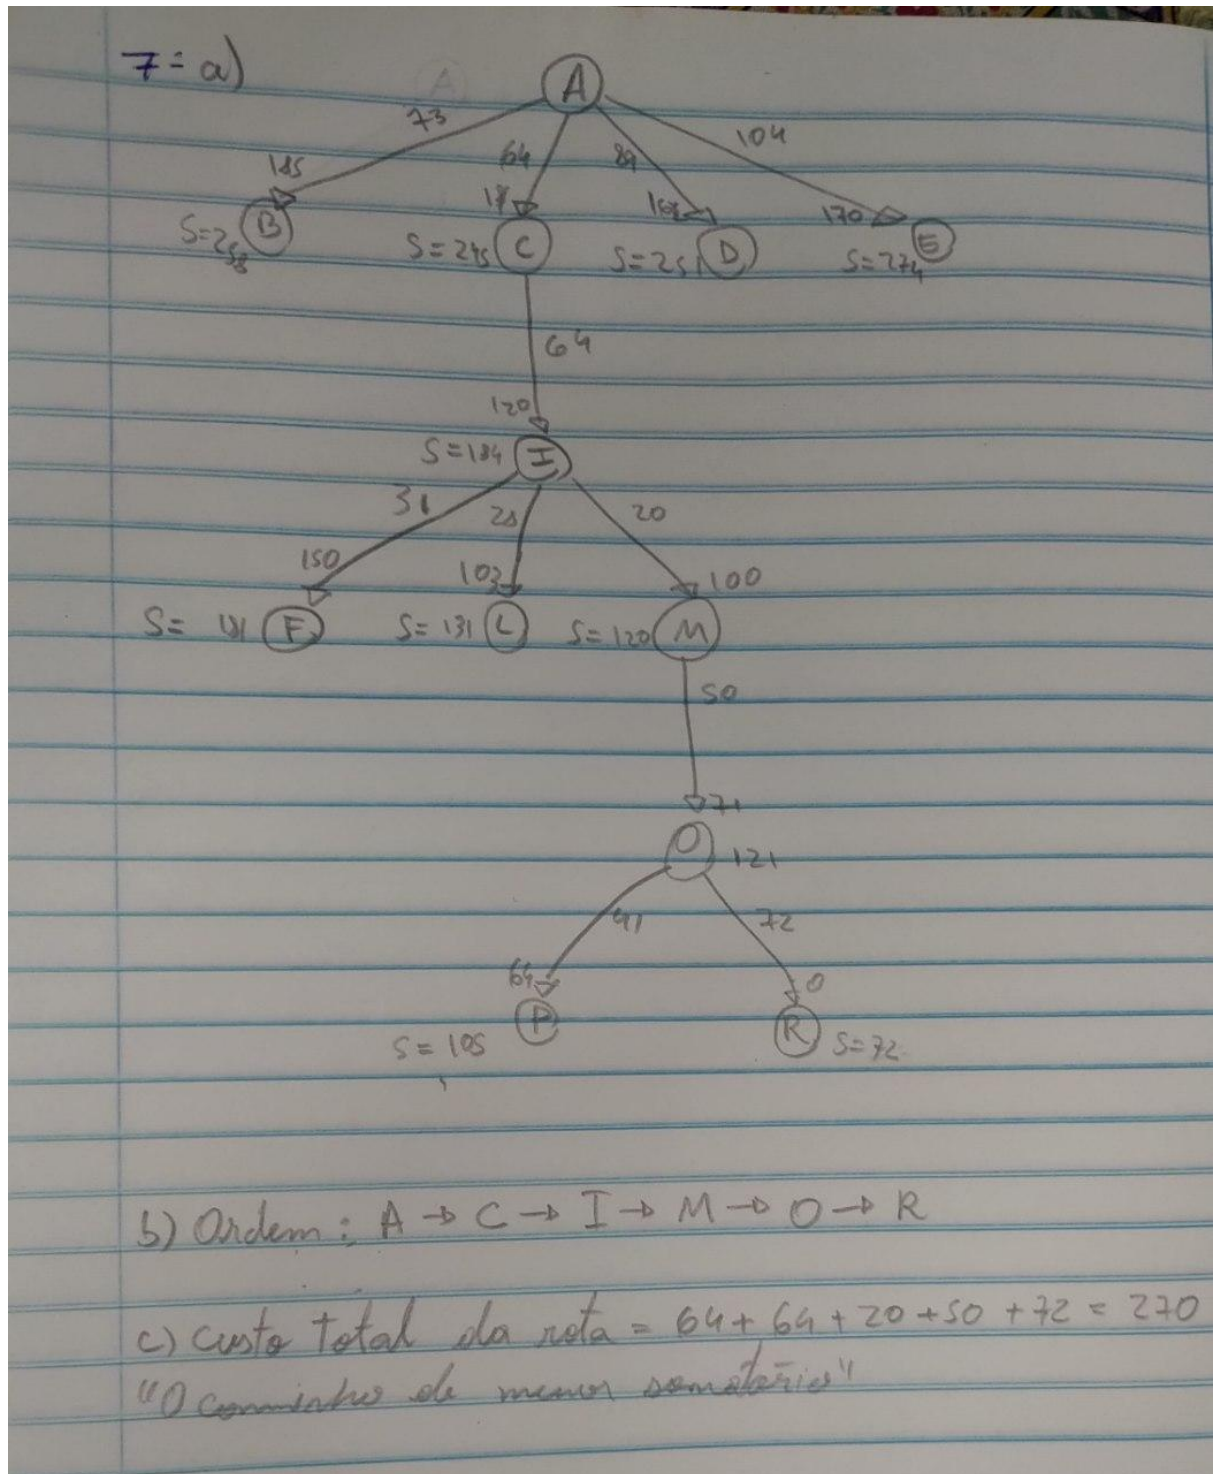 7= a)
A
73 64 89 104
185 170
S=258 B S=245 C S=251 D S=274 E
64
120
S=184 I
31 28 20
150 103 100
S= 181 F S= 131 L S=120 M
50
71
O 121
41 72
64 0
P R
S= 105 S=72
b) Ordem: A → C → I → M → O → R
c) Custo total da rota = 64+64+20+50+72 = 270
"O caminho de menor somatório"